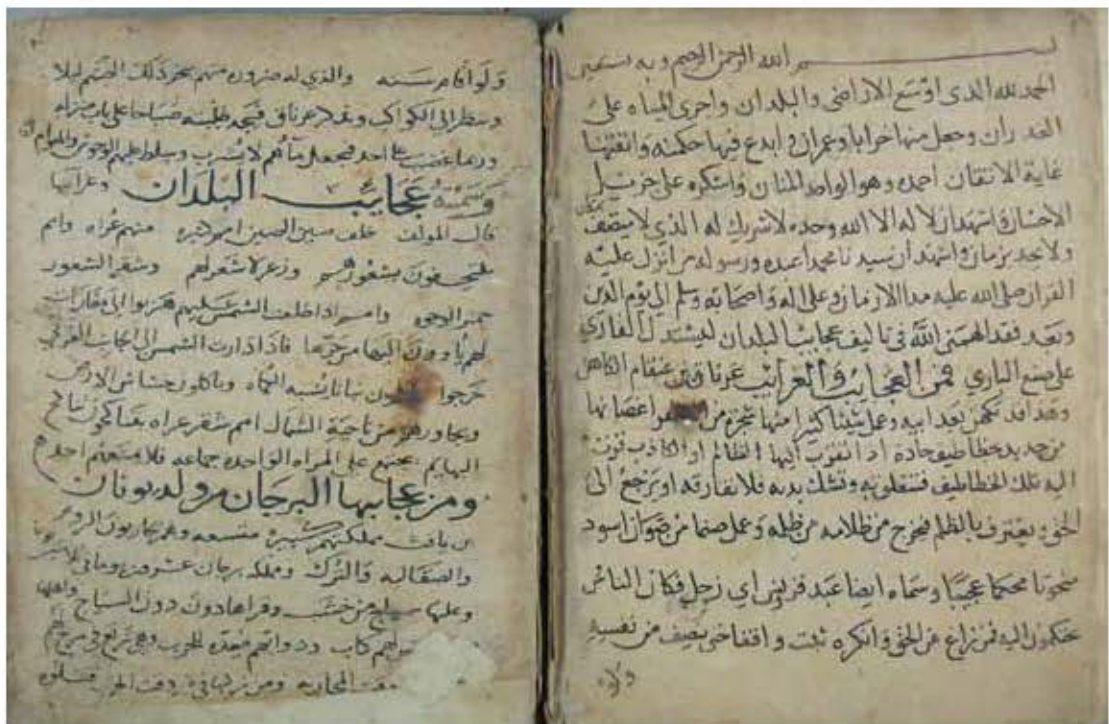 بسم الله الرحمن الرحيم وبه نستعين
الحمد لله الذي اوسع الاراضى والبلدان واجرى المياه على
الغدران وجعل منها خرابا وعمران وابدع فيها حكمته واتقنها
غاية الاتقان احمده وهو الواحد المنان واشكره على
الاحسان واشهد ان لا اله الا الله وحده لا شريك له الذي لا
ولا يحد بزمان واشهد ان سيدنا محمدا عبده ورسوله من انزل عليه
القران صلى الله عليه مدا الازمان وعلى اله واصحابه وسلم الى يوم الدين
وبعد فقد الهمنى الله فى تاليف عجايب البلدان ليستدل القاري
على صنع الباري فمن العجايب والغرايب عرناق بن عنقام الكاهن
وهذا قد تكهن بعد ابيه وعمل شيئا كثيرا منها شجره من
من حديد بخطاطيف حادة اذا تقرب اليها الظالم او الكاذب
اليه تلك الخطاطيف فتتعلق به وتشك بدنه فلا تفارقه او يرجع الى
الحق ويعترف بالظلم فيخرج من ظلامه من ظلمه وعمل صنما من صوان اسود
وسماه ايضا عبد اي زحل فكان الناس
يحتكمون اليه فمن زاغ عن الحق وانكره ثبت واقفا حتى ينصف من نفسه
ولو
ولو اقام سنه والذي له ضروره منهم يبخر ذلك الصنم ليلا
وينظر الى الكواكب عرناق فيجد طلبته صباحا على باب منزله
وربما غضب على احد فيجعل ماهم لا يشرب ويسلط عليهم الوحوش والهوام
عجايب البلدان وغرايبها
قال المولف خلف صين الصين امم كثيره منهم عراه وامم
يلتحفون بشعورهم لا شعر لهم وشقر الشعور
حمر الوجوه وامم اذا طلعت الشمس عليهم هربوا الى مغارات
لهم ياوون اليها من حرها فاذا دارت الشمس الى الجانب الغربي
خرجوا نباتا يشبه الكماه وياكلون حشايش الارض
من ناحية الشمال امم شقر عراه
البهايم يجتمع على المراه الواحده جماعه فلا يمنعهم احد
ومن عجايبها البرجان من ولد يونان
بن يافث مملكتهم كبيره متسعه وهم يحاربون الروم
والصقالبه والترك ومملكه برجان عشرون
وعليها سياج من خشب وقراها دون السياج
لهم كتاب ودوابهم معده للحرب
وقت المحاربه ومن